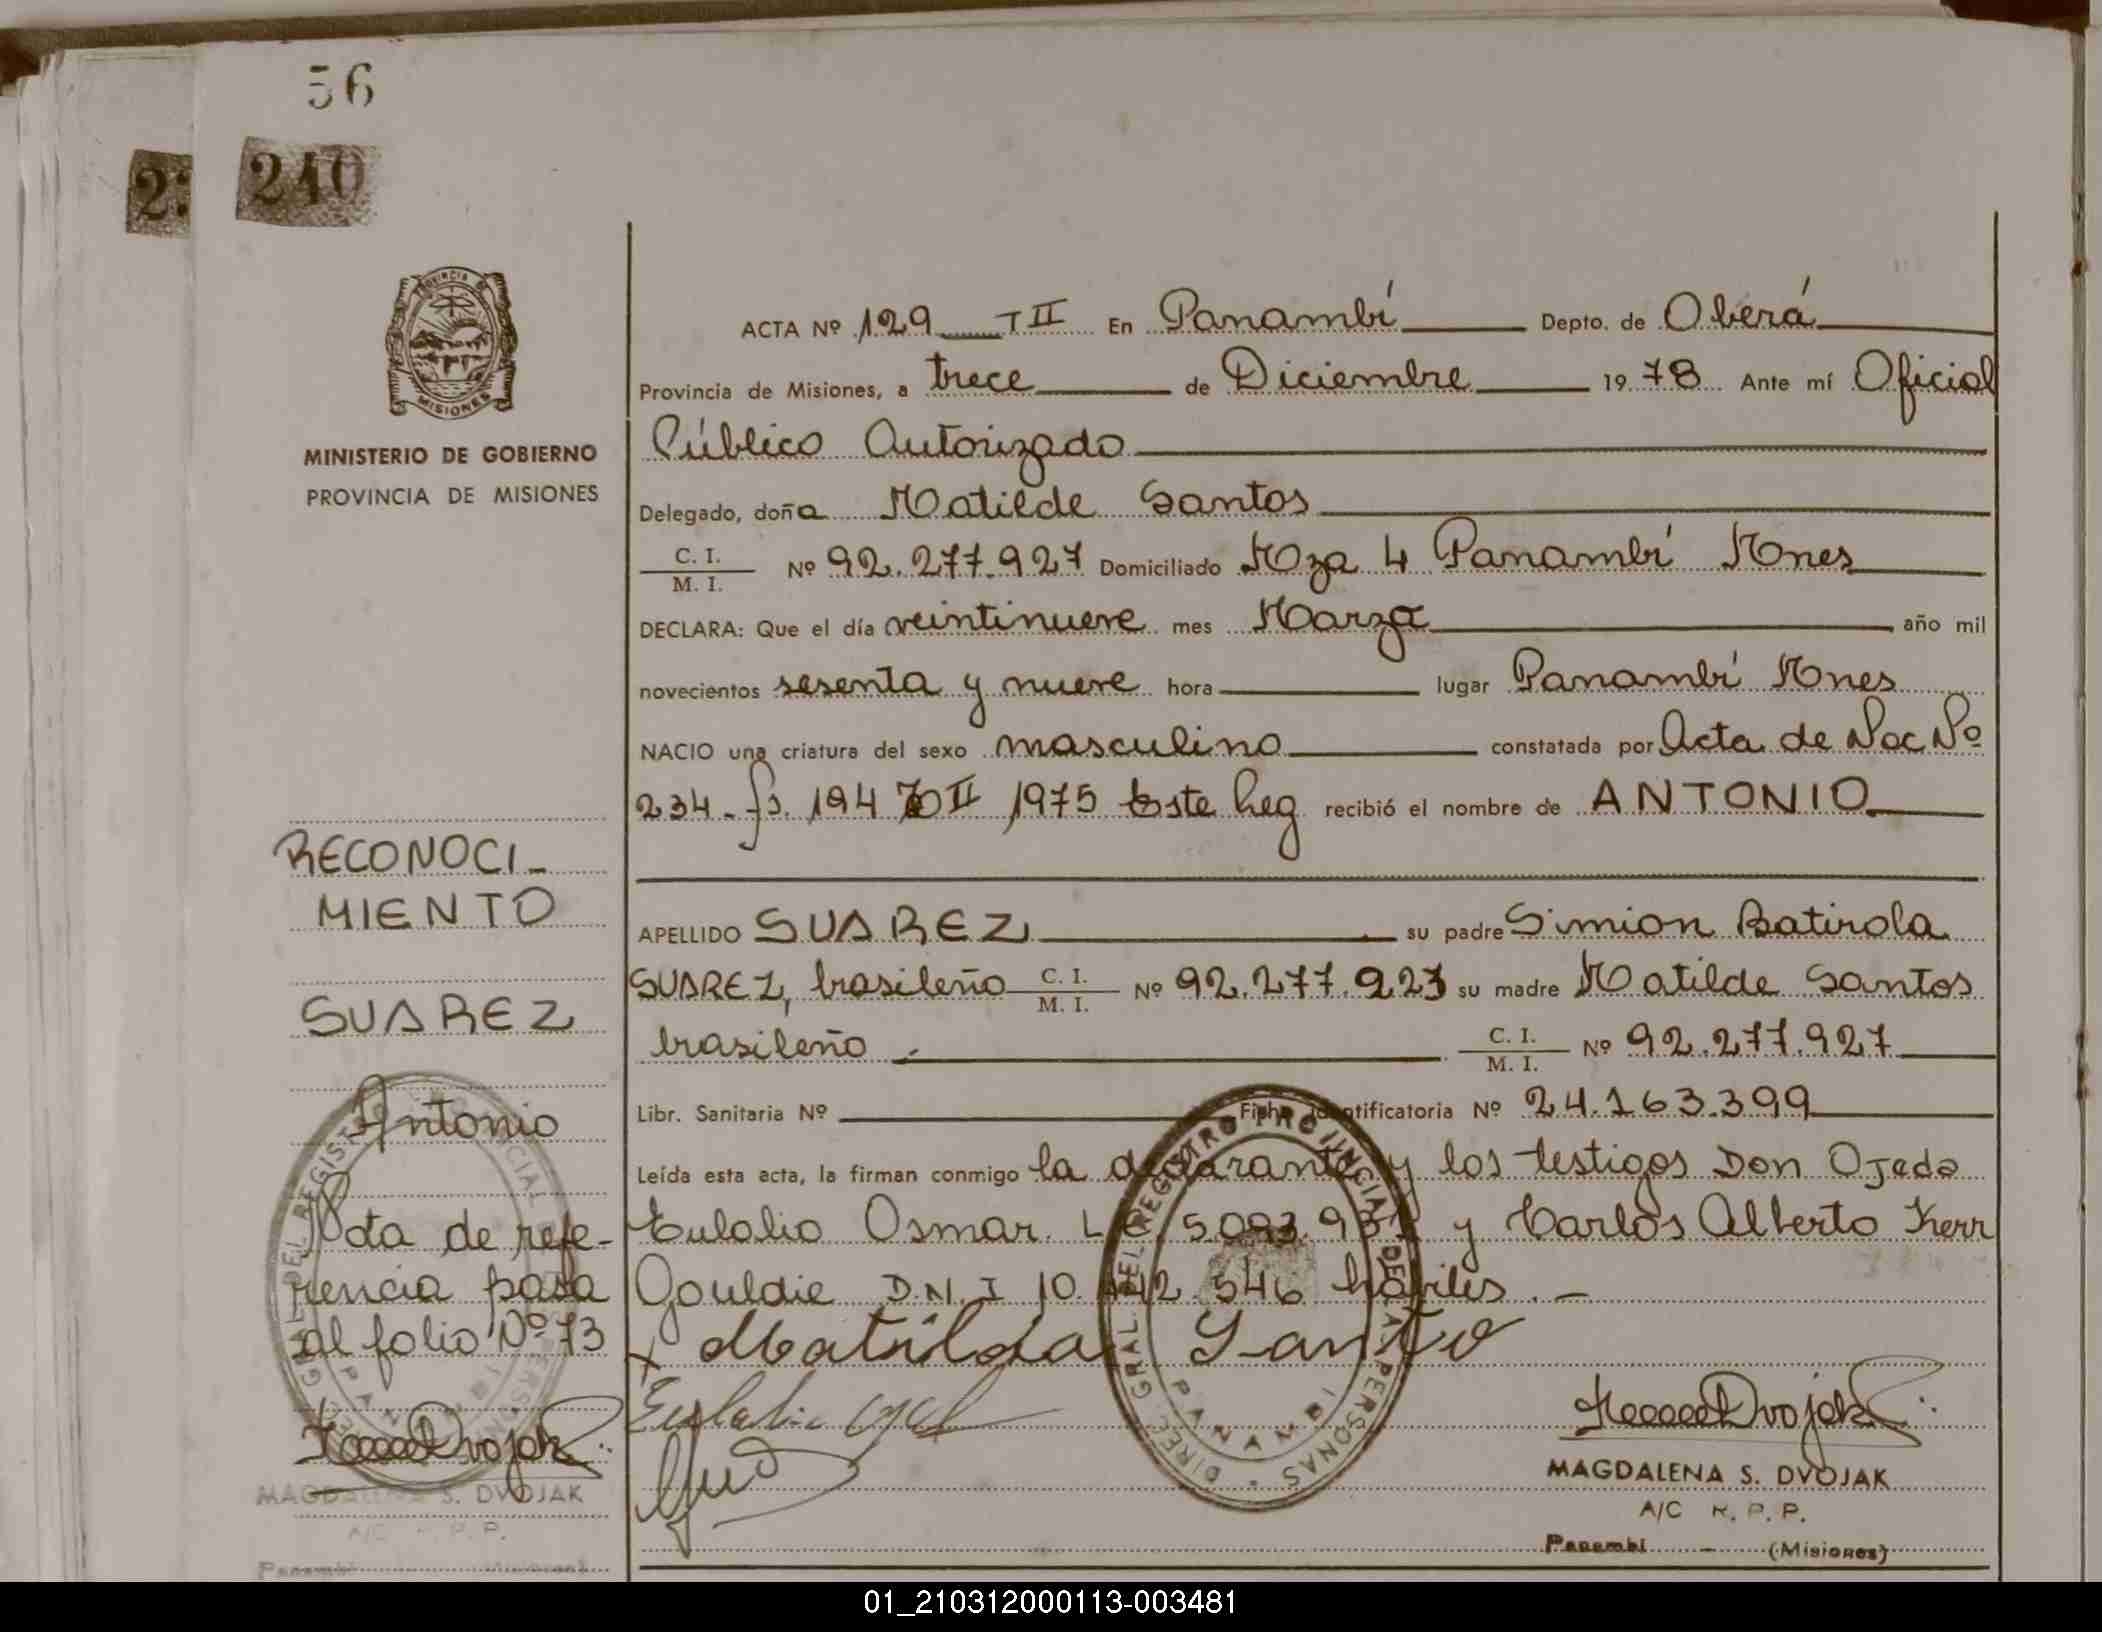 56
2
240
PROVINCIA DE
MISIONES
MINISTERIO DE GOBIERNO
PROVINCIA DE MISIONES
ACTA Nº 129 T II En Panambí Depto. de Oberá
Provincia de Misiones, a trece de Diciembre 1978 Ante mí Oficial
Público Autorizado
Delegado, doña Matilde Santos
C. I.
M. I. Nº 92.277.927 Domiciliado Mza 4 Panambí Mnes
DECLARA: Que el día veintinueve mes Marzo año mil
novecientos sesenta y nueve hora lugar Panambí Mnes
NACIO una criatura del sexo masculino constatada por Acta de Nac Nº
234 - fs. 194 TO II 1975 Este Reg recibió el nombre de ANTONIO
RECONOCI-
MIENTO
SUAREZ
Antonio
Nota de refe-
rencia pasa
al folio Nº 73
MAGDALENA S. DVOJAK
A/C R. P. P.
Panambí (Misiones)
APELLIDO SUAREZ su padre Simion Batirola
SUAREZ, brasileño C. I.
M. I. Nº 92.277.923 su madre Matilde Santos
brasileño C. I.
M. I. Nº 92.277.927
Libr. Sanitaria Nº Ficha Identificatoria Nº 24.163.399
Leída esta acta, la firman conmigo la declarante y los testigos Don Ojeda
Eulalio Osmar L.E. 5.093. y Carlos Alberto Kerr
Gouldie D.N.I 10.442.546 hábiles. -
x Matilda Santo
DIREC. GRAL. DEL REGISTRO PROVINCIAL DE LAS PERSONAS
PANAMBI
MAGDALENA S. DVOJAK
A/C R. P. P.
Panambí (Misiones)
01_210312000113-003481